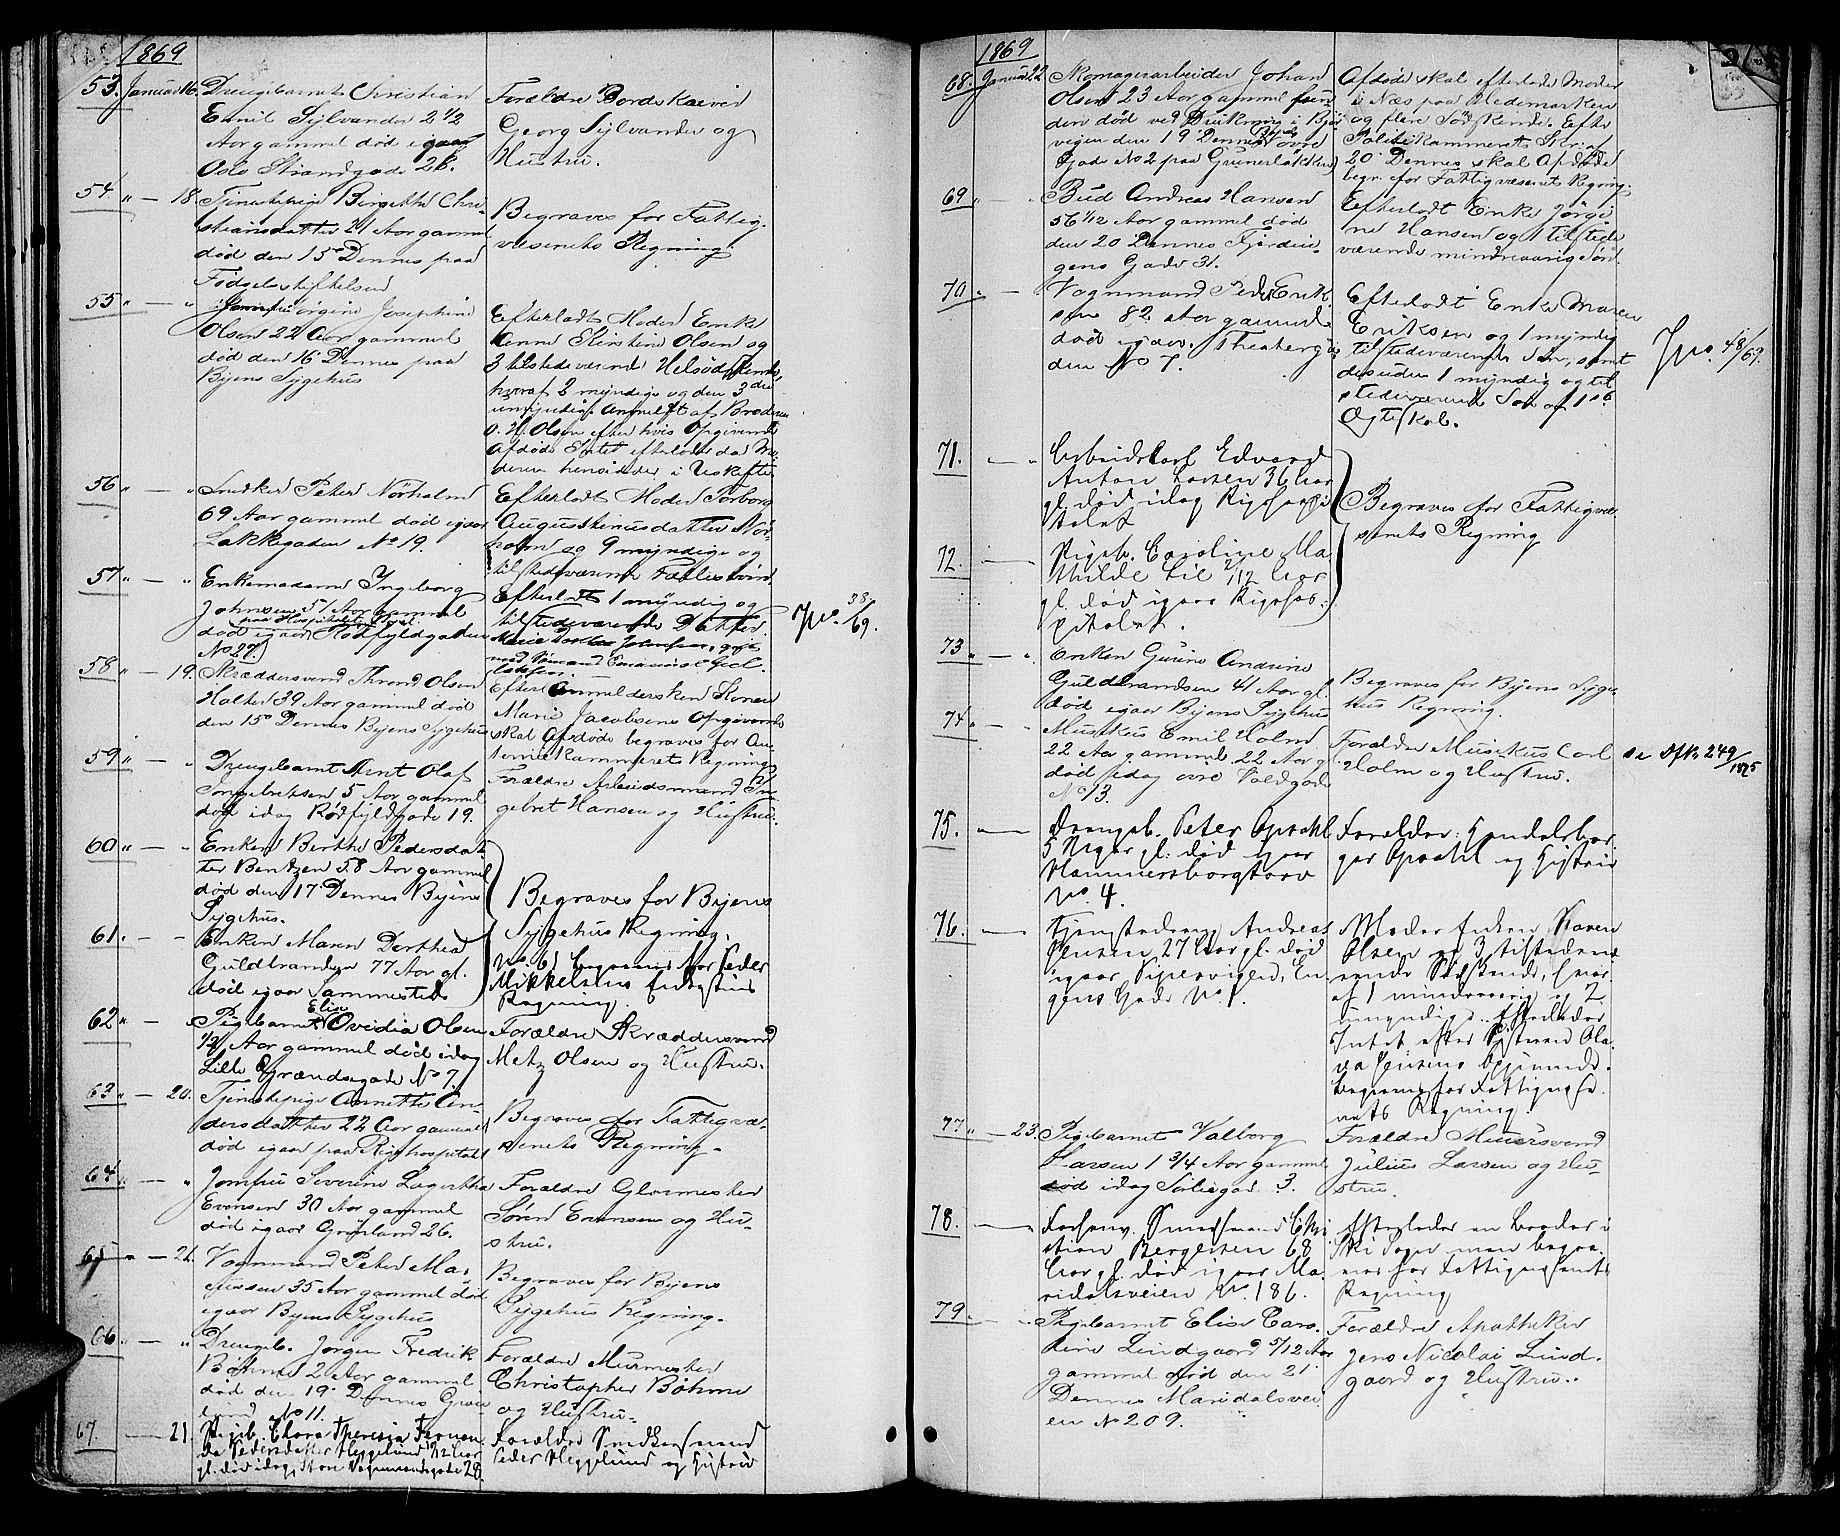 1869
53. Januar 16. Drengebarnet Christian
Emil Sylvander 2 1/2
Aar gammel død igaar
Oslo Strandgade 28.
Forældre Bordskriver
Georg Sylvander og
Hustru.
54 " — 18. Tjenestepige Birgitte Chri-
stiansdatter 21 Aar gammel
død den 15 Dennes paa
Fødselsstiftelsen
Begraves for Fattig-
væsenets Regning.
55 " — " Jomfru Jørgine Josephine
Olsen 22 Aar gammel
død den 16 Dennes paa
Byens Sygehus
Efterladt Moder Enke
Anne Kirstine Olsen og
3 tilstedeværende Helsødskende,
hvoraf 2 myndige og den 3die
umyndig anmeldt af Broderen
O. H. Olsen efter hvis Opgivende
Afdøde Intet efterlader da Mo-
deren hensidder i Uskifte.
56 " — " Snedker Peter Nørholm
69 Aar gammel død igaar
Lakkegaden No 19.
Efterladt Moder Torborg
Augustinusdatter Nør-
holm og 9 myndige og
tilstedeværende Fællesbørn.
57 " — " Enkemadame Ingeborg
Johnsen 51 Aar gammel
død igaar paa Hospitalet Rødfyldgaden
No 27.
Efterladt 1 myndig og
tilstedeværende Datter.
Marie Johnsen, gift
med Sømand
Jno. 38/69.
58 " — 19. Skræddersvend Thrond Olsen
Halter 39 Aar gammel død
den 15 Dennes Byens Sygehus
Efter Anmeldersken Konen
Marie Jacobsens Opgivende
skal Afdøde begraves for
kammerets Regning
59 " — " Drengebarnet Arnt Olaf
Ingebretsen 5 Aar gammel
død idag Rødfyldgade 19.
Forældre Arbeidsmand In-
gebret Hansen og Hustru.
60 " — " Enken Berthe Pedersdat-
ter Bentzen 58 Aar gammel
død den 17 Dennes Byens
Sygehus.
61. — — Enken Maren Dorthea
Guldbrandsen 77 Aar gl.
død igaar Sammesteds
Begraves for Byens
Sygehus Regning.
No 61 begraves for Peder
Mikkelsens
Regning.
62 " — " Pigebarnet Elise Ovidia Olsen
Aar gammel død idag
Lille Grændsegade No 7.
Forældre Skræddersvend
Metz Olsen og Hustru.
63 " — 20. Tjenestepige Annette An-
dersdatter 22 Aar gammel
død igaar paa Rigshospitalet
Begraves for Fattigvæ-
senets Regning.
64 " — " Jomfru Severine Lagertha
Evensen 30 Aar gammel
død igaar Grønland 26.
Forældre Glarmester
Søren Evensen og Hu-
stru.
65 " — 21. Vognmand Peter Ma-
35 Aar gammel død
igaar Byens Sygehus
Begraves for Byens
Sygehus Regning.
66 " — " Drengeb. Jørgen Fredrik
Bøhme 2 Aar gammel
død den 19 Dennes Grøn-
land No 11.
Forældre Murmester
Christopher Bøhme
og Hustru.
67 — 21. Pigeb. Clara Theresia
Pedersdatter Heggelund Aar
gl. død idag, Store Vognmandsgade 28.
Forældre Snedkersvend
Peder Heggelund og Hustru
1869
68. Januar 22. Skomagerarbeider Johan
Olsen 23 Aar gammel fun-
den død ved Drukning i Bjør-
vigen den 19 Dennes (Boede øvre
Gade No 2 paa Grünerløkken)
Afdøde skal efterlade Moder
i Næs paa Hedemarken
og flere Sødskende. Efter
Politikammerets Skr: af
20 Dennes skal Afdøde
begr. for Fattigvæsenets Regning.
69 " — " Bud Andreas Hansen
56 1/12 Aar gammel død
den 20 Dennes Fjerdin-
gens Gade 31.
Efterladt Enke Jørgi-
ne Hansen og 1 tilstede-
værende mindreaarig Søn.
70 " — Vognmand Peder Erik-
sen 82 Aar gammel
død igaar Theaterga-
den No 7.
Efterladt Enke Maren
Eriksen og 1 myndig
tilstedeværende Søn, samt
desuden 1 myndig og til-
stedeværende Søn af 1ste
Ægteskab.
Jno. 48/69.
71. — " Arbeidskarl Edvard
Anton Larsen 36 Aar
gl. død idag Rigshospi-
talet
72. — Pigeb. Caroline Ma-
thilde Lil 2/12 Aar
gl. død igaar Rigshos-
pitalet.
Begraves for Fattigvæ-
senets Regning
73 " — " Enken Gurine Andrine
Guldbrandsen 41 Aar gl.
død igaar Byens Sygehus
Begraves for Byens Syge-
hus Regning.
74 " — Musikus Emil Holm
22 Aar gammel 22 Aar gl.
død idag øvre Voldgade
No 13.
Forældre Musikus Carl
Holm og Hustru.
se Dfk. 249/1875
75. — Drengeb. Peter Opsahl
5 Uger gl. død igaar
Hammersborgtorv
No. 4.
Forældre: Handelsbor-
ger Opsahl og Hustru
76. — Tjenestedreng Andreas
Jensen 27 Aar gl. død
igaar Pipervigen, En-
gens Gade No 1.
Moder Enken Maren
Olsen og 3 tilstedevæ-
rende Sødskende, hvor-
af 1 mindreaarig og 2
umyndige. Efterlader
Intet efter Søsteren Ola-
va Jensens Opgivende.
begraves for Fattigvæse-
nets Regning.
77 " — 23. Pigebarnet Valborg
Larsen 1 3/4 Aar gammel
død idag Seilegad. 3.
Forældre Muursvend
Julius Larsen og Hu-
stru.
78. — Forhenv. Smedsvend Chri-
stian Bergersen 68
Aar gl. død igaar Ma-
ridalsveien No. 186.
Efterlader en Broder i
Ski Sogn men begra-
ves for Fattigvæsenets
Regning
79 — Pigebarnet Elise Caro-
line Lindgaard 5/12 Aar
gammel død den 21
Dennes Maridalsvei-
en No 209.
Forældre Apotheker
Jens Nicolai Lind-
gaard og Hustru.